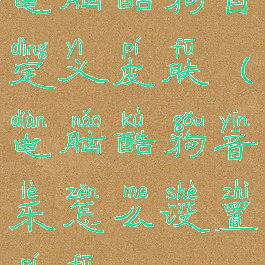 电脑酷狗自
dìng yì pí fū
定义皮肤（
diàn nǎo kù gǒu yīn
电脑酷狗音
lè zěn me shè zhì
乐怎么设置
pí fū